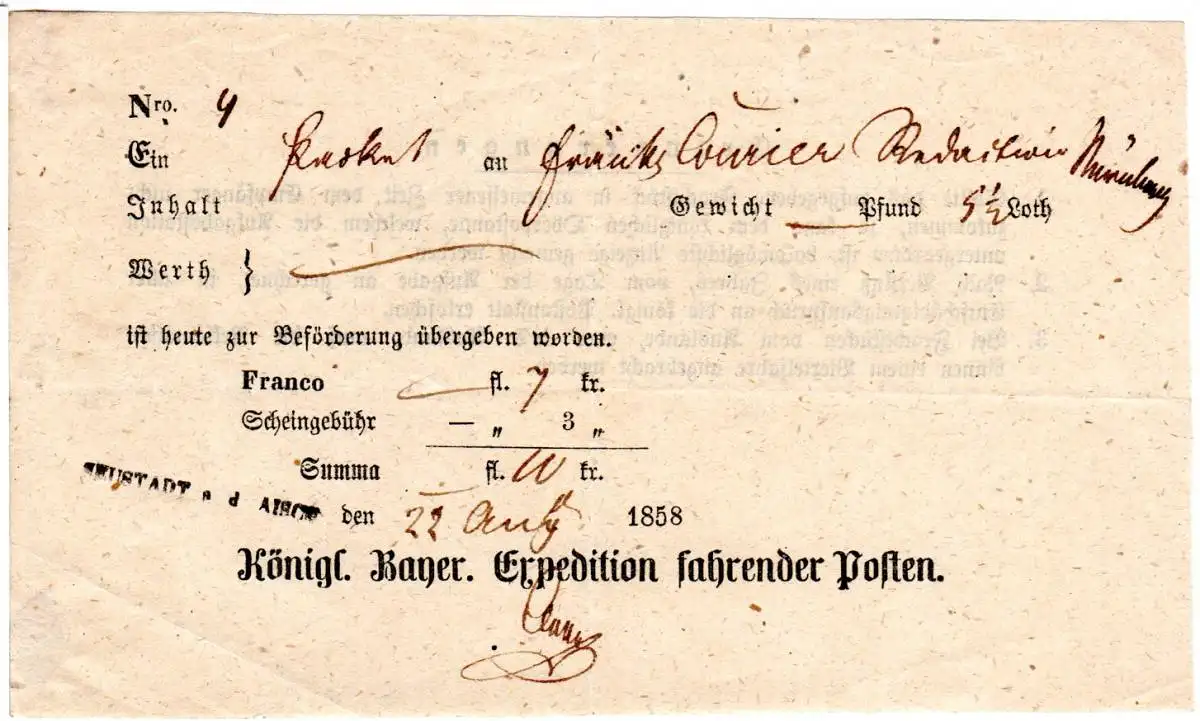 Nro. 4
Ein Packet an Fränk. Courier Redaction Nürnberg
Inhalt Gewicht — Pfund 5½ Loth
Werth }
ist heute zur Beförderung übergeben worden.
Franco — fl. 7 kr.
Scheingebühr — „ 3 „
Summa fl. 10 kr.
NEUSTADT a d AISCH den 22 Aug 1858
Königl. Bayer. Expedition fahrender Posten.